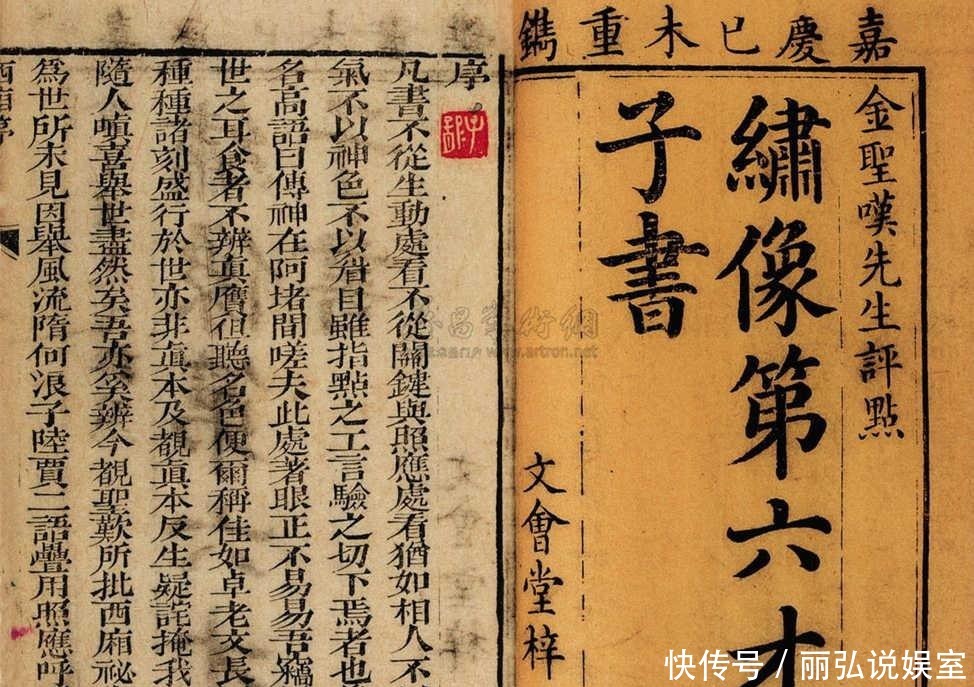 嘉慶已未重鐫
金聖嘆先生評點
繡像第六才
子書
文會堂梓
序
凡書不從生動處看不從關鍵與照應處看猶如相人不
氣不以神色不以眉目雖指點之工言驗之切下焉者也
名高語曰傳神在阿堵間嗟夫此處著眼正不易易吾竊
世之耳食者不辨眞贋但聽名色便爾稱佳如卓老文長
種種諸刻盛行於世亦非眞本及覩眞本反生疑詫掩我
隨人嗔喜舉世盡然矣吾亦奚辨今覩聖歎所批西廂祕
爲世所未見因舉風流隋何浪子陸賈二語疊用照應呼
西廂序
www.artron.net
快传号 / 丽弘说娱室